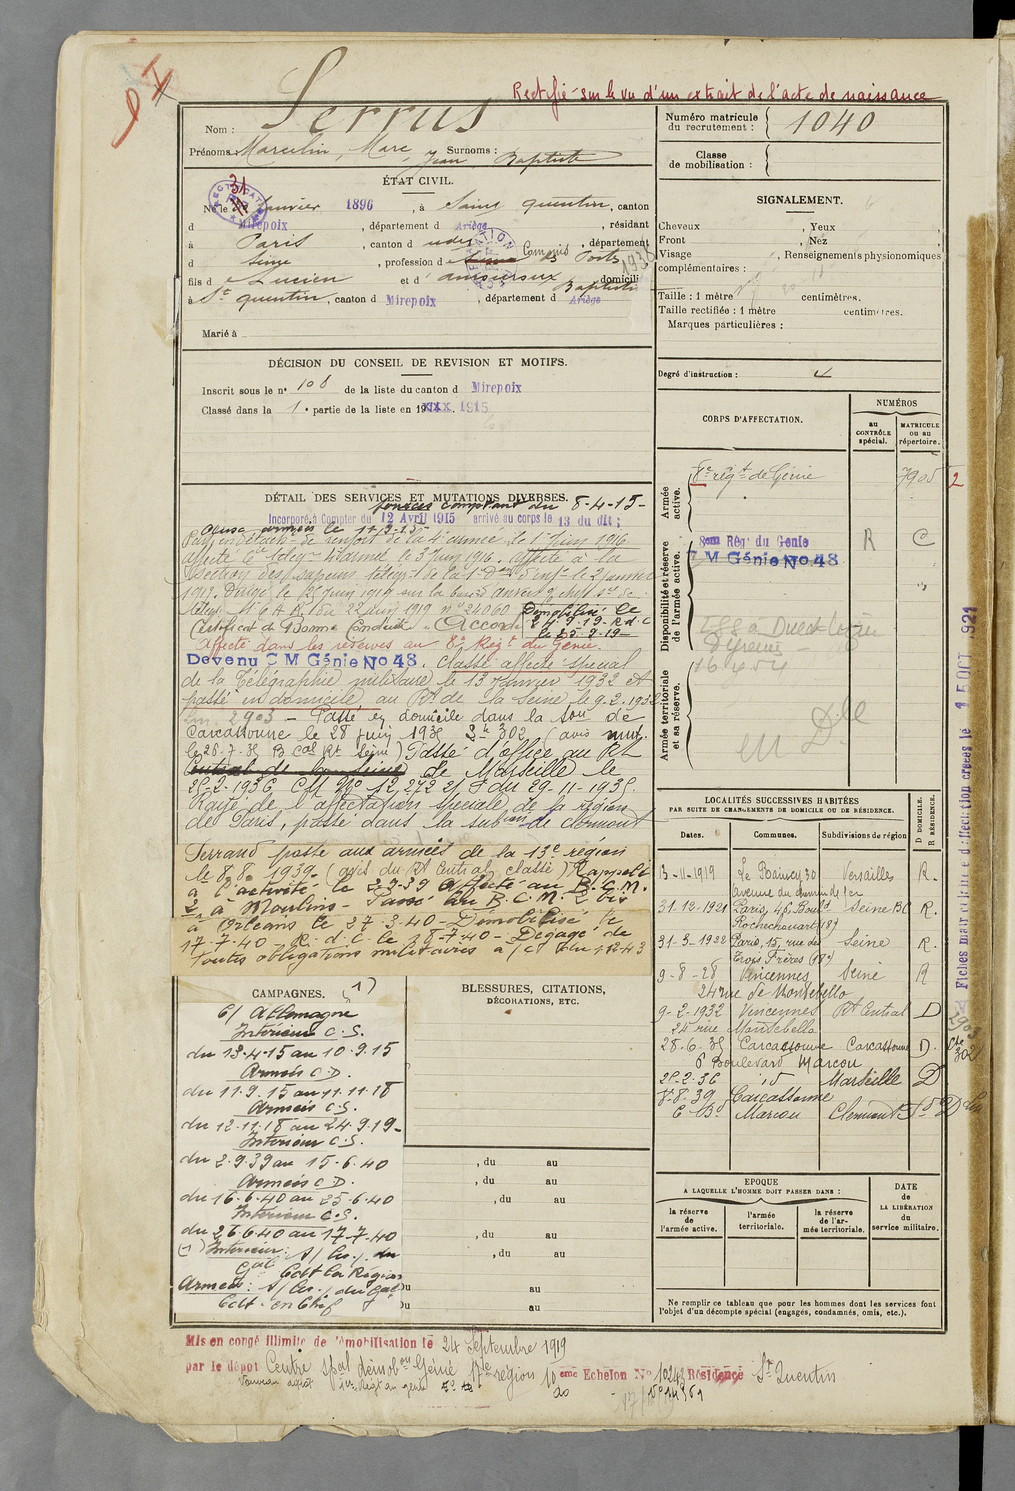 Rectifié sur le vu d'un extrait de l'acte de naissance
Nom : Serrus
Prénoms : Marcelin, Marc, Jean Baptiste Surnoms :
Numéro matricule du recrutement : 1040
Classe de mobilisation :
ÉTAT CIVIL.
Né le 31 Janvier 1896, à Saint Quentin, canton
d Mirepoix, département d Ariège, résidant
à Paris, canton d udes, département
d Seine, profession d Commis des Postes
fils de Lucien et d' domicili
à St Quentin, canton d Mirepoix, département d Ariège
Marié à
SIGNALEMENT.
Cheveux , Yeux
Front , Nez
Visage , Renseignements physionomiques
complémentaires :
Taille : 1 mètre centimètres.
Taille rectifiée : 1 mètre centimètres.
Marques particulières :
Degré d'instruction :
DÉCISION DU CONSEIL DE REVISION ET MOTIFS.
Inscrit sous le n° 108 de la liste du canton d Mirepoix
Classé dans la 1e partie de la liste en 1915
DÉTAIL DES SERVICES ET MUTATIONS DIVERSES.
comptant du 8-4-15-
Incorporé à Compter du 12 Avril 1915 arrivé au corps le 13 du dit ;
aux armées le 11-9-15
de renfort de la 4e armée le 1er Juin 1916
affecté Cie télégr. 4e armée le 3 Juin 1916. affecté à la
Section des Sapeurs télégr. de la 1e Don d'inf. le 2 janvier
1917. Dirigé le 25 juin 1919 sur la
22 juin 1919 n° 24060 Démobilisé le
24-9-19- R d C
le 25-9-19-
Certificat de Bonne Conduite "Accordé"
Affecté dans les réserves au 8e Régt du Génie.
Devenu C M Génie No 48. Classé affecté spécial
de la Télégraphie militaire le 13 Janvier 1932 et
passé en domicile au Rt de la Seine le 9-2-1932
2903 - Passé en domicile dans la son de
Carcassonne le 28 Juin 1935 302 (avis mut.
le 26-7-35 B cal Rt Seine) Passé d'office au Rt
de Marseille le
25-2-1936, CM N° 12,272 du 29-11-1935
Rayé de l'affectation spéciale de la région
de Paris, passé dans la subon de Clermont
Ferrand poste aux armées de la 13e région
le 8.8.1939- (avis du Rt Central classé) Rappelé
à l'activité le 2-9-39 Affecté au B.C.M.
à Moulins - Passé au B.C.M. 2 bis
à Orléans le 27-3-40- Démobilisé le
17-7-40 - R. d. C. le 18-7-40- Dégagé de
toutes obligations militaires
CORPS D'AFFECTATION.
NUMÉROS
au CONTRÔLE spécial.
MATRICULE ou au répertoire.
Armée active.
8e régt de Génie 7905
2
Disponibilité et réserve de l'armée active.
8eme Rég du Genie R C
C M Génie No 48
Armée territoriale et sa réserve.
16454
en Dlle
Fiches matricule d'affectation créées le 15 OCT. 1921
LOCALITÉS SUCCESSIVES HABITÉES
PAR SUITE DE CHANGEMENTS DE DOMICILE OU DE RÉSIDENCE.
Dates. Communes. Subdivisions de région D DOMICILE. R RÉSIDENCE.
13-11-1919 Le Raincy 30 Versailles R.
avenue du chemin de fer
31-12-1921 Paris, 46 Bould Seine BC R.
Rochechouart (18)
31-3-1922 Paris, 15, rue des Seine R.
Trois Frères (18e)
9-8-28 Vincennes Seine R
24 rue de Montebello
9-2-1932 Vincennes Rt Central D
24 rue Montebello
28-6-35 Carcassonne Carcassonne D.
6 Boulevard Marcou
25-2-36 id Marseille D
8.8.39 Carcassonne
6 Bd Marcou Clermont Fd D
2903
302
CAMPAGNES. (1)
C/ Allemagne
Intérieur C.S.
du 13-4-15 au 10-9-15
Armées C.D.
du 11-9-15 au 11-11-18
Armées C.S.
du 12-11-18 au 24-9-19-
Intérieur C.S.
du 2-9-39 au 15-6-40
Armées C.D.
du 16-6-40 au 25-6-40
Intérieur C.S.
du 26-6-40 au 17-7-40
(1) Intérieur : du
Gal Cdt la Région
Armées : du Gal
Cdt en Chef
BLESSURES, CITATIONS,
DÉCORATIONS, ETC.
, du au
, du au
, du au
, du au
, du au
Du au
Du au
EPOQUE
A LAQUELLE L'HOMME DOIT PASSER DANS :
la réserve de l'armée active.
l'armée territoriale.
la réserve de l'armée territoriale.
DATE de LA LIBÉRATION du service militaire.
Ne remplir ce tableau que pour les hommes dont les services font
l'objet d'un décompte spécial (engagés, condamnés, omis, etc.).
Mis en congé illimité de démobilisation le 24 Septembre 1919
par le dépôt Centre spal démobon Génie 17e région 10 eme Echelon No 10243 Résidence St Quentin